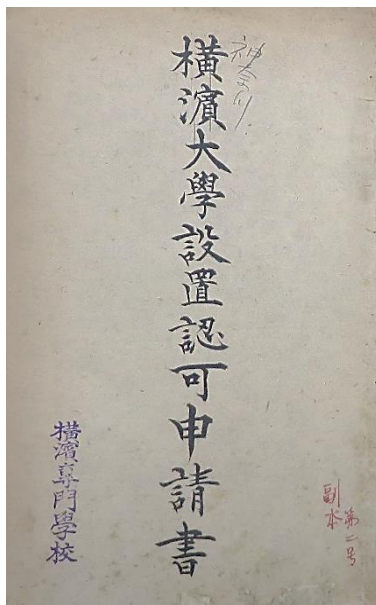 神奈川
横濱大學設置認可申請書
第二号
副本
横濱専門學校